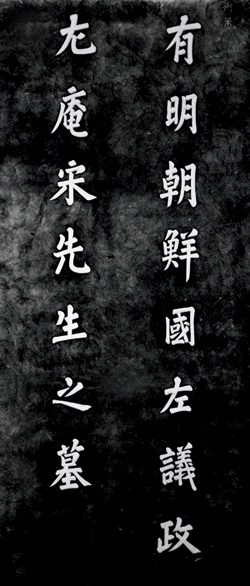 有明朝鮮國左議政
尤庵宋先生之墓